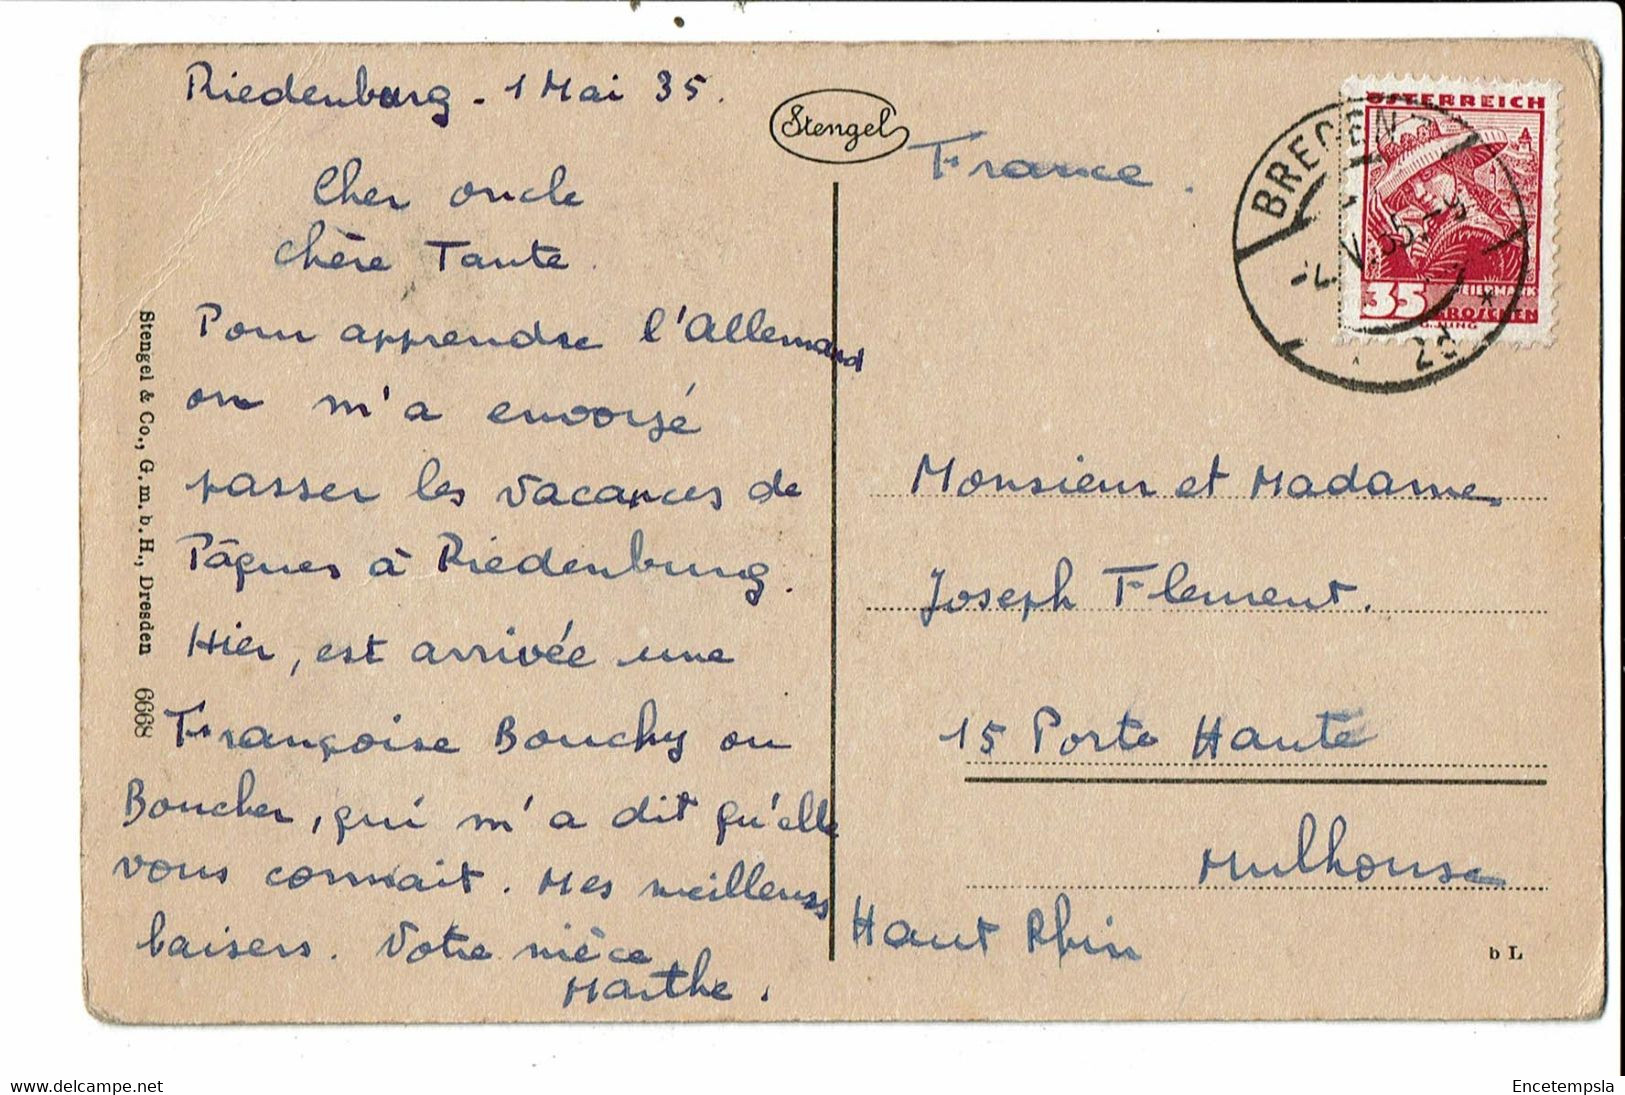 Riedenburg - 1 Mai 35.
Cher oncle
Chère Tante.
Pour apprendre l'Allemand
on m'a envoyé
passer les vacances de
Pâques à Riedenburg.
Hier, est arrivée une
Françoise Bouchy ou
Boucher, qui m'a dit qu'elle
vous connait. Mes meilleurs
baisers. Votre nièce
Marthe.
Stengel & Co., G. m. b. H., Dresden 6668
Stengel
France.
ÖSTERREICH
35
STEIERMARK
GROSCHEN
G. JUNG
BREGENZ
V. 35
2d
Monsieur et Madame
Joseph Flement.
15 Porte Haute
Mulhouse
Haut Rhin
b L
www.delcampe.net
Encetempsla